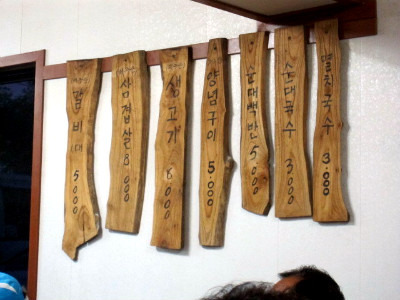 갈비 1대 5000
삼겹살 8000
생고기 8000
양념구이 5000
순대백반 5000
순대국수 3000
멸치국수 3000